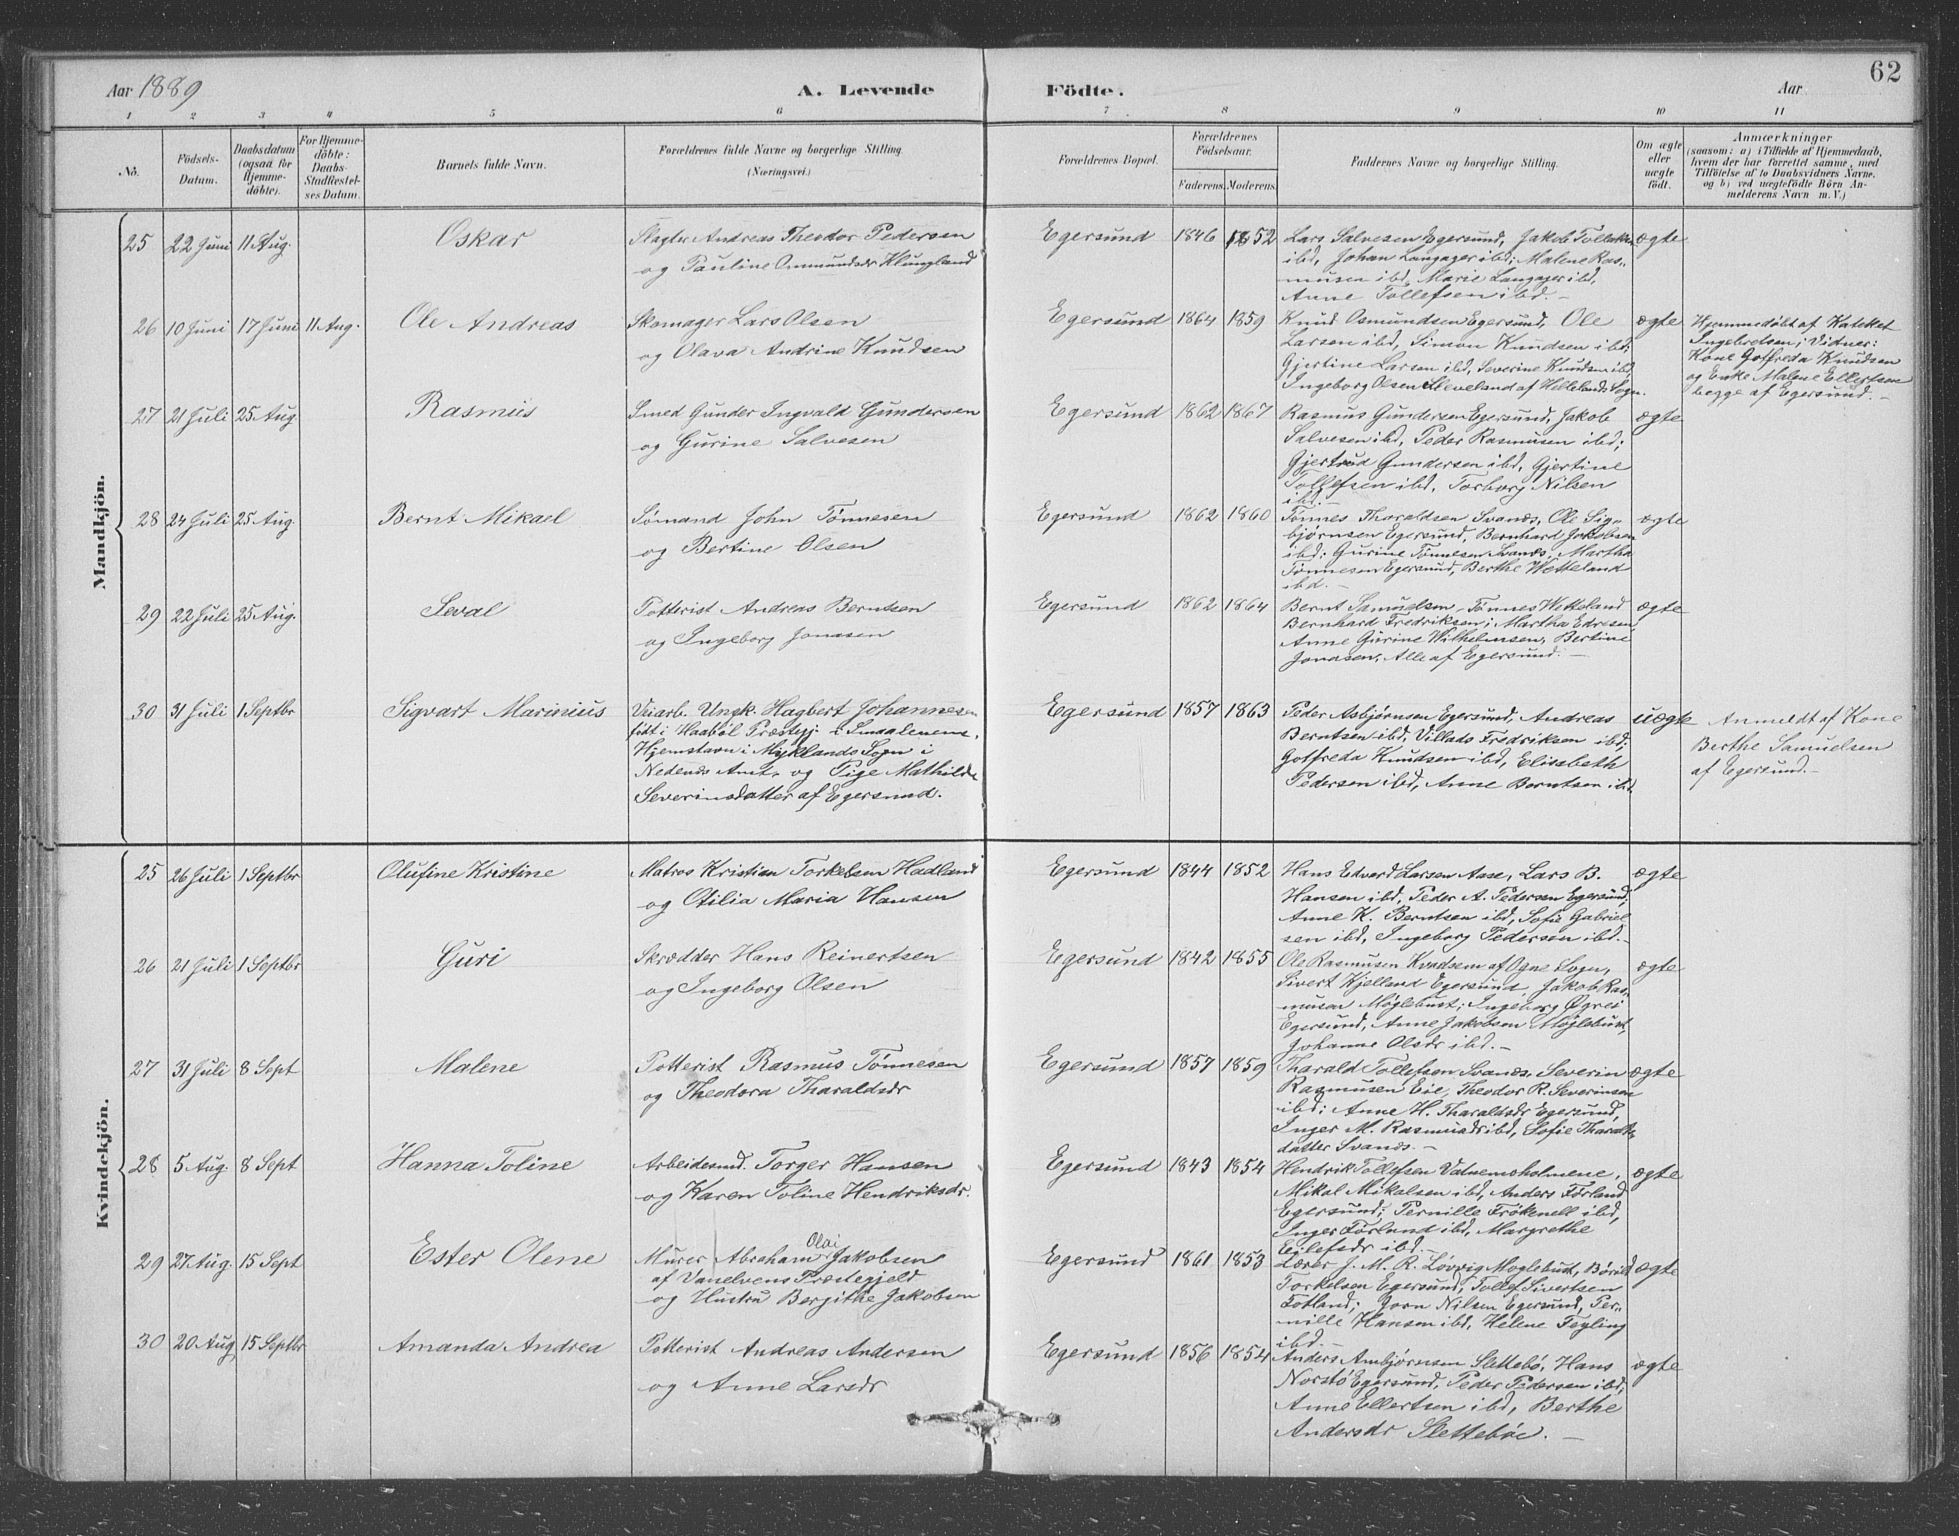 Aar 1889
A. Levende Födte.
Aar
62
1 2 3 4 5 6 7 8 9 10 11
No.
Födsels-
Datum.
Daabsdatum
(ogsaa for
Hjemme-
döbte).
For Hjemme-
döbte:
Daabs-
Stadfæstel-
ses Datum.
Barnets fulde Navn.
Forældrenes fulde Navne og borgerlige Stilling.
(Næringsvei.)
Forældrenes Bopæl.
Forældrenes
Födselsaar.
Faderens. Moderens.
Faddernes Navne og borgerlige Stilling.
Om ægte
eller
uægte
födt.
Anmærkninger
(saasom: a) i Tilfælde af Hjemmedaab,
hvem der har forrettet samme, med
Tilföielse af to Daabsvidners Navne.
og b) ved uægtefödte Börn An-
melderens Navn m. V.)
Mandkjön.
25 22 Juni 11 Aug. Oskar
Slagter Andreas Theodor Pedersen
og Pauline Ommundsdr Klungland
Egersund 1846 1852
Lars Salvesen Egersund, Jakob Tollefsen
ibd, Johan Langager ibd; Malene Ras-
musen ibd, Marie Langager ibd,
Anne Tollefsen ibd.-
ægte
26 10 Juni 17 Juni 11 Aug. Ole Andreas
Skomager Lars Olsen
og Olava Andrine Knudsen
Egersund 1864 1859
Knud Osmundsen Egersund, Ole
Larsen ibd, Simon Knudsen ibd;
Gjertine Larsen ibd, Severine Knudsen ibd,
Ingeborg Olsen Sleveland af Hellelands Sogn.
ægte
Hjemmedøbt af Kateket
Ingebretsen; Vidner:
Kone Gotfreda Knudsen
og Enke Malene Ellertsen
begge af Egersund.-
27 21 Juli 25 Aug. Rasmus
Smed Gunder Ingvald Gundersen
og Gurine Salvesen
Egersund 1862 1867
Rasmus Gundersen Egersund, Jakob
Salvesen ibd, Peder Rasmusen ibd;
Gjertrud Gundersen ibd, Gjertine
Tollefsen ibd, Torborg Nilsen
ibd.-
ægte
28 24 Juli 25 Aug. Bernt Mikael
Sømand John Tønnesen
og Bertine Olsen
Egersund 1862 1860
Tønnes Tharaldsen Svanes, Ole Sig-
bjørnsen Egersund, Bernhard Jakobsen
ibd; Gurine Tønnesen Svanes, Martha
Tønnesen Egersund, Berthe Wetteland
ibd.-
ægte
29 22 Juli 25 Aug. Seval
Potterist Andreas Berntsen
og Ingeborg Jonasen
Egersund 1862 1864
Bernt Samuelsen, Tønnes Wetteland
Bernhard Fredriksen; Martha Edresen,
Anne Gurine Wilhelmsen, Bertine
Jonasen, Alle af Egersund.-
ægte
30 31 Juli 1 Septbr Sigvart Marinius
Veiarb. Ungk. Hagbert Johannesen
født i Haabøl Præstegj. i Smalenene,
Hjemstavn i Myklands Sogn i
Nedenes Amt, og Pige Mathilde
Severinsdatter af Egersund.
Egersund 1857 1863
Peder Asbjørnsen Egersund, Andreas
Berntsen ibd, Villads Fredriksen ibd;
Gotfreda Knudsen ibd, Elisabeth
Pedersen ibd, Anne Berntsen ibd,
uægte
Anmeldt af Kone
Berthe Samuelsen
af Egersund.-
Kvindekjön.
25 26 Juli 1 Septbr Olufine Kristine
Matros Kristian Torkelsen Hadland
og Otilia Maria Hansen
Egersund 1844 1852
Hans Edvard Larsen Aase, Lars B.
Hansen ibd, Peder A. Pedersen Egersund;
Anne K. Berntsen ibd, Sofie Gabriel
sen ibd, Ingeborg Pedersen ibd.-
ægte
26 21 Juli 1 Septbr Guri
Skrædder Hans Reinertsen
og Ingeborg Olsen
Egersund 1842 1855
Ole Rasmusen Kvadsem af Ogne Sogn,
Sivert Kjelland Egersund, Jakob Ras-
musen Møglebust; Ingeborg Øgrei
Egersund, Anne Jakobsen Møglebust,
Johanne Olsdr ibd.-
ægte
27 31 Juli 8 Sept Malene
Potterist Rasmus Tønnesen
og Theodora Tharaldsdr
Egersund 1857 1859
Tharald Tollefsen Svanes, Severin
Rasmusen Eie, Theodor R. Severinsen
ibd; Anne H. Tharaldsdr Egersund,
Inger M. Rasmusdr ibd, Sofie Tharalds
datter Svanes.-
ægte
28 5 Aug. 8 Sept Hanna Toline
Arbeidesmd. Torger Hansen
og Karen Toline Hendriksdr.
Egersund 1843 1854
Hendrik Tollefsen Vatnemoholmene,
Mikal Mikalsen ibd, AndersFørland
Egersund; Pernille Frøkenell ibd,
Inger Førland ibd, Margrethe
Eilefsdr ibd.-
ægte
29 27 Aug. 15 Sept Ester Olene
Olai
Murer Abraham Jakobsen
af Vanelvens Præstegjeld
og Hustru Bergithe Jakobsen
Egersund 1861 1853
Lærer J. M. R. Løvrig Møglebust, Børild
Torkelsen Egersund, Tollef Sivertsen
Fotland; Jorn Nilsen Egersund, Per-
nille Hansen ibd, Helene Tegling
ibd.-
ægte
30 20 Aug. 15 Septbr Amanda Andrea
Potterist Andreas Andersen
og Anne Larsdr
Egersund 1856 1854
Anders Ambjørnsen Slettebø, Hans
Norstø Egersund, Peder Pedersen ibd;
Anne Ellertsen ibd, Berthe
Andersdr Slettebøe.-
ægte